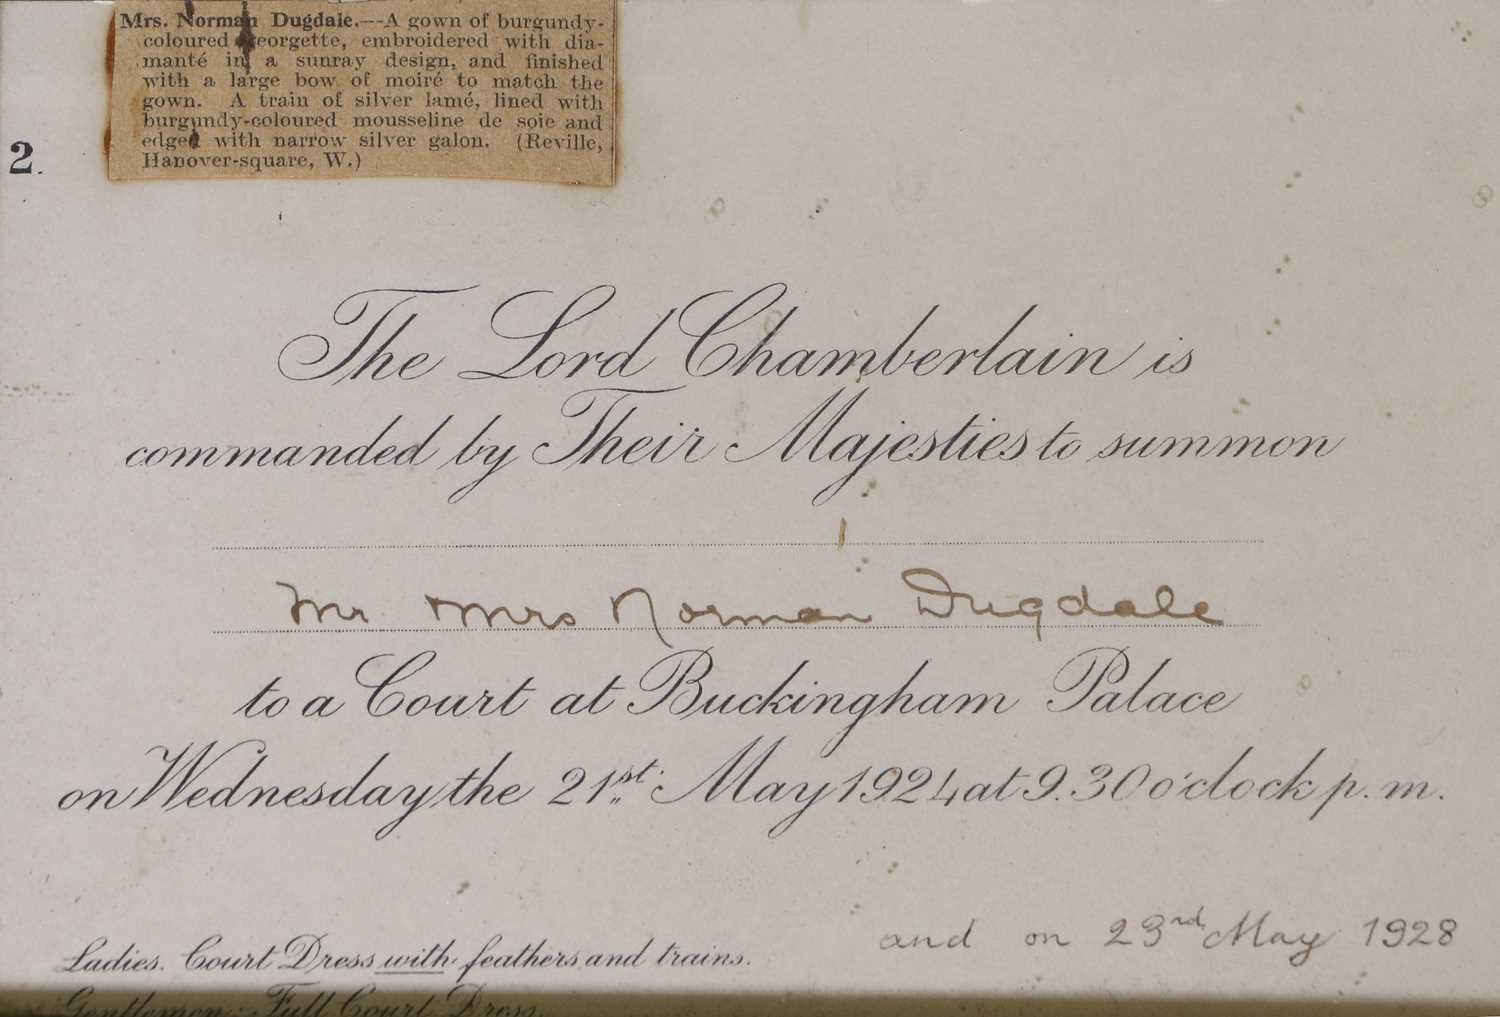 Mrs. Norman Dugdale.—A gown of burgundy-
coloured georgette, embroidered with dia-
manté in a sunray design, and finished
with a large bow of moiré to match the
gown. A train of silver lamé, lined with
burgundy-coloured mousseline de soie and
edged with narrow silver galon. (Reville,
Hanover-square, W.)
2.
The Lord Chamberlain is
commanded by Their Majesties to summon
Mr Mrs Norman Dugdale
to a Court at Buckingham Palace
on Wednesday the 21st. May 1924 at 9.30 o'clock p.m.
and on 23rd May 1928
Ladies. Court Dress with feathers and trains.
Gentlemen: Full Court Dress.